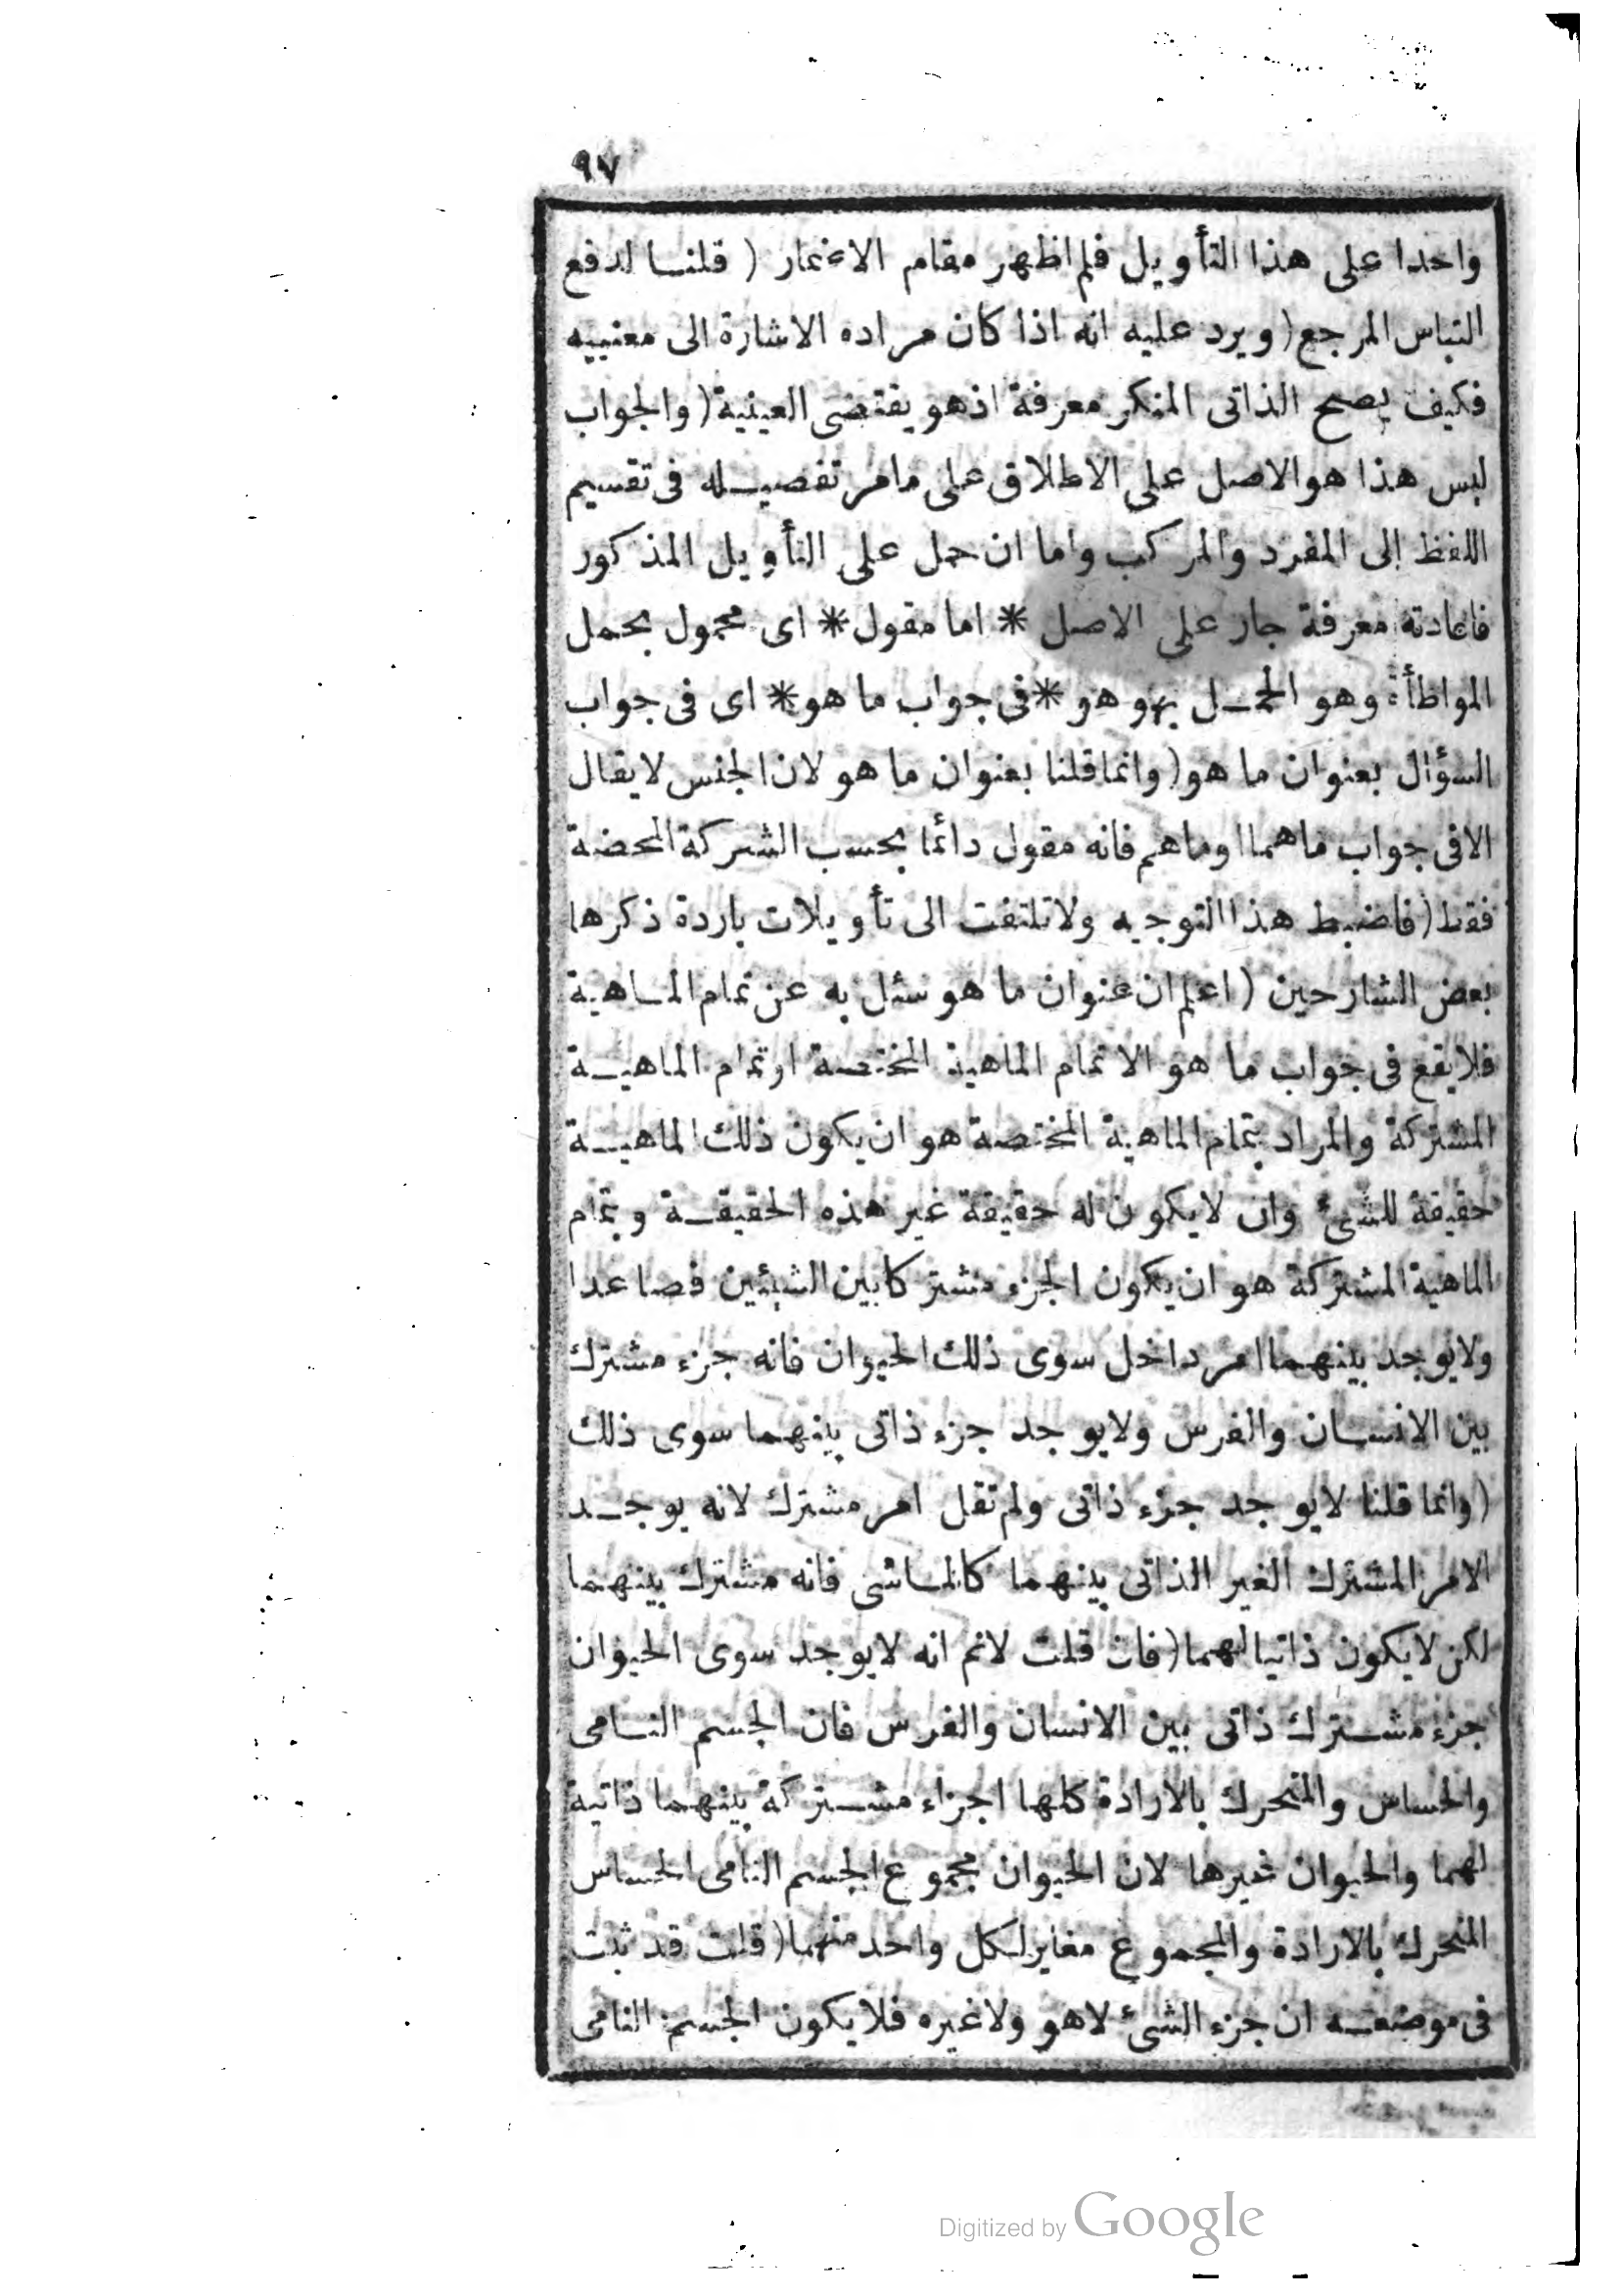 ٩٧
واحدا على هذا التأويل فلم اظهر مقام الاضمار ( قلنا لدفع
التباس المرجع ( ويرد عليه انه اذا كان مراده الاشارة الى معنييه
فكيف يصح الذاتى المنكر معرفة اذ هو يقتضى العينية ( والجواب
ليس هذا هو الاصل على الاطلاق على مامر تفصيله فى تقسيم
اللفظ الى المفرد والمركب واما ان حمل على التأويل المذكور
فاعادته معرفة جار على الاصل * اما مقول * اى محمول بحمل
المواطأة وهو الحمل بهو هو * فى جواب ما هو * اى فى جواب
السؤال بعنوان ما هو ( وانما قلنا بعنوان ما هو لان الجنس لا يقال
الا فى جواب ماهما او ماهم فانه مقول دائما بحسب الشركة المحضة
فقط ( فاضبط هذا التوجيه ولا تلتفت الى تأويلات باردة ذكرها
بعض الشارحين ( اعلم ان عنوان ما هو سئل به عن تمام الماهية
فلا يقع فى جواب ما هو الا تمام الماهية المختصة او تمام الماهية
المشتركة والمراد بتمام الماهية المختصة هو ان يكون ذلك الماهية
حقيقة للشئ وان لا يكون له حقيقة غير هذه الحقيقة وبتمام
الماهية المشتركة هو ان يكون الجزء مشتركا بين الشيئين فصاعدا
ولا يوجد بينهما امر داخل سوى ذلك الحيوان فانه جزء مشترك
بين الانسان والفرس ولا يوجد جزء ذاتى بينهما سوى ذلك
( وانما قلنا لا يوجد جزء ذاتى ولم نقل امر مشترك لانه يوجد
الامر المشترك الغير الذاتى بينهما كالماشى فانه مشترك بينهما
لكن لا يكون ذاتيا لهما ( فان قلت لانم انه لا يوجد سوى الحيوان
جزء مشترك ذاتى بين الانسان والفرس فان الجسم النامى
والحساس والمتحرك بالارادة كلها اجزاء مشتركة بينهما ذاتية
لهما والحيوان غيرها لان الحيوان مجموع الجسم النامى الحساس
المتحرك بالارادة والمجموع مغاير لكل واحد منهما ( قلت قد ثبت
فى موضعه ان جزء الشئ لا هو ولا غيره فلا يكون الجسم النامى
Digitized by Google